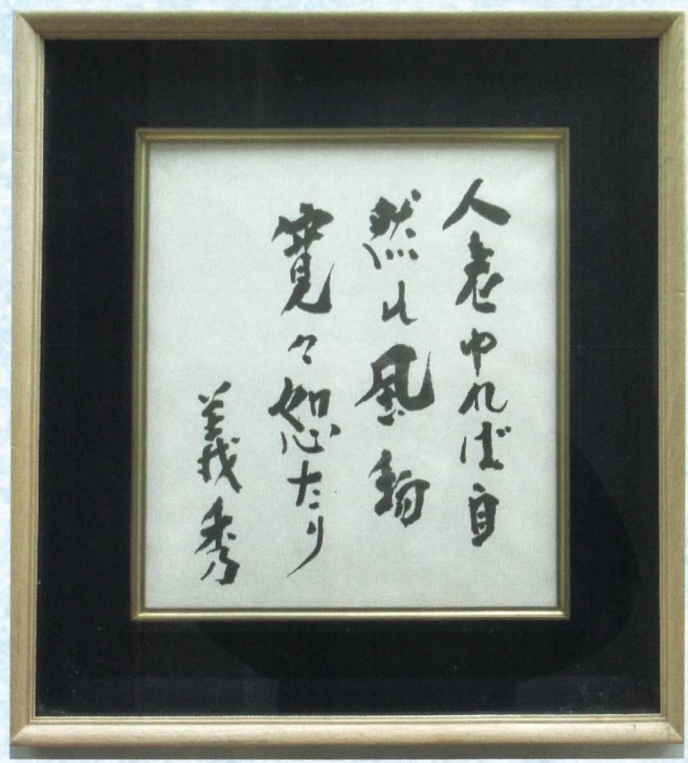 人老ゆれば自
然風物
寛々恕たり
義秀